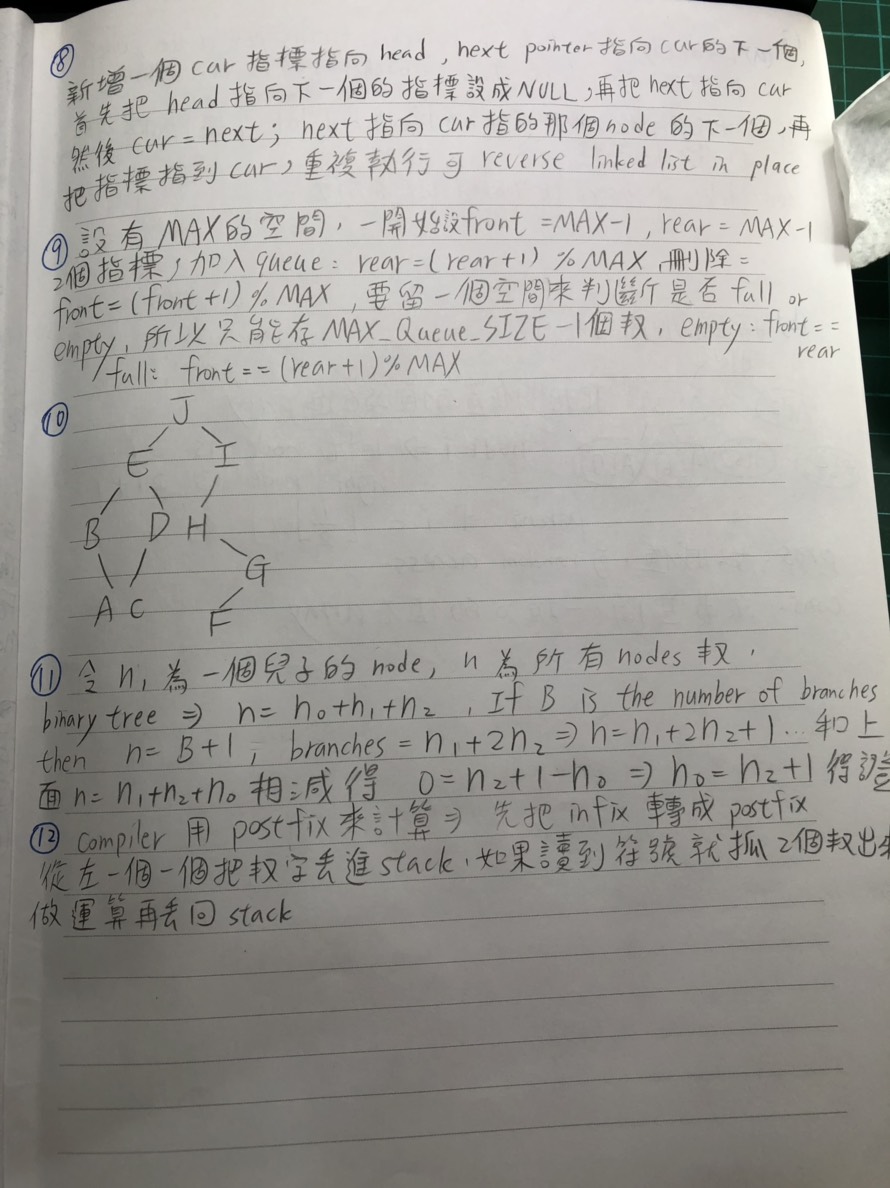 ⑧
新增一個 cur 指標指向 head , next pointer 指向 cur 的下一個,
首先把 head 指向下一個的指標設成NULL,再把 next 指向 cur
然後 cur = next ; next 指向 cur 指的那個 node 的下一個,再
把指標指到 cur,重複執行可 reverse linked list in place
⑨ 設有 MAX的空間,一開始設front =MAX-1 , rear = MAX-1
2個指標,加入queue : rear=(rear+1) %MAX ,刪除=
front=(front+1)%MAX , 要留一個空間來判斷是否 full or
empty, 所以只能存MAX_Queue_SIZE-1個數, empty : front==
rear
full: front == (rear+1)%MAX
⑩ J
E I
B D H
G
A C F
⑪ 令 n₁ 為一個兒子的 node, n 為所有nodes 數,
binary tree ⇒ n=n₀+n₁+n₂ , If B is the number of branches
then n=B+1 , branches = n₁+2n₂ ⇒ n=n₁+2n₂+1 ... 和上
面 n=n₁+n₂+n₀ 相減得 0=n₂+1-n₀ ⇒ n₀=n₂+1 得證
⑫ compiler 用 postfix 來計算⇒ 先把 infix 轉成 postfix
從左一個一個把數字丟進stack,如果讀到符號就抓2個數出來
做運算再丟回 stack